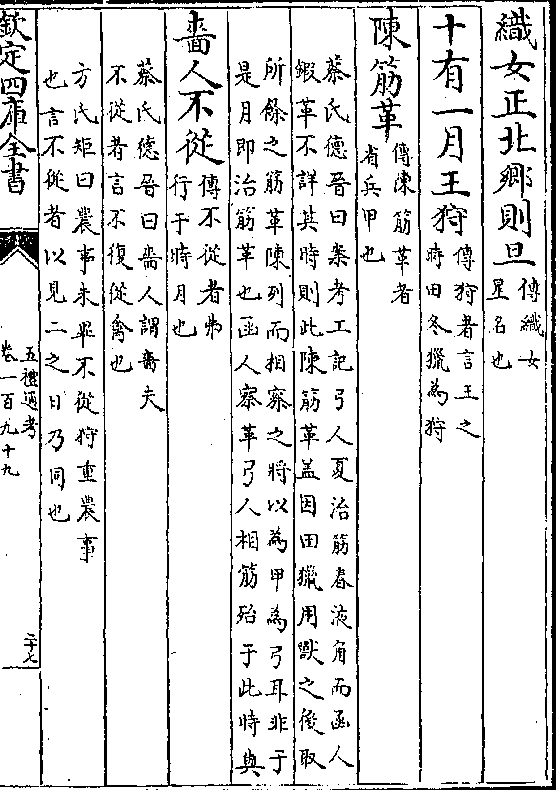 織女正北鄉則旦傳織女
星名也
十有一月王狩傳狩者言王之
時田冬獵為狩
陳筋革傳陳筋革者
省兵甲也
蔡氏德晉曰案考工記弓人夏治筋春液角而函人
鍜革不詳其時則此陳筋革盖因田獵用獸之後取
所餘之筋革陳列而相察之將以為甲為弓耳非于
是月即治筋革也函人察革弓人相筋殆于此時與
嗇人不從傳不從者弗
行于時月也
蔡氏德晉曰嗇人謂嗇夫
不從者言不復從禽也
方氏矩曰農事未畢不從狩重農事
也言不從者以見二之日乃同也
欽定四庫全書
五禮通考
卷一百九十九
二十七